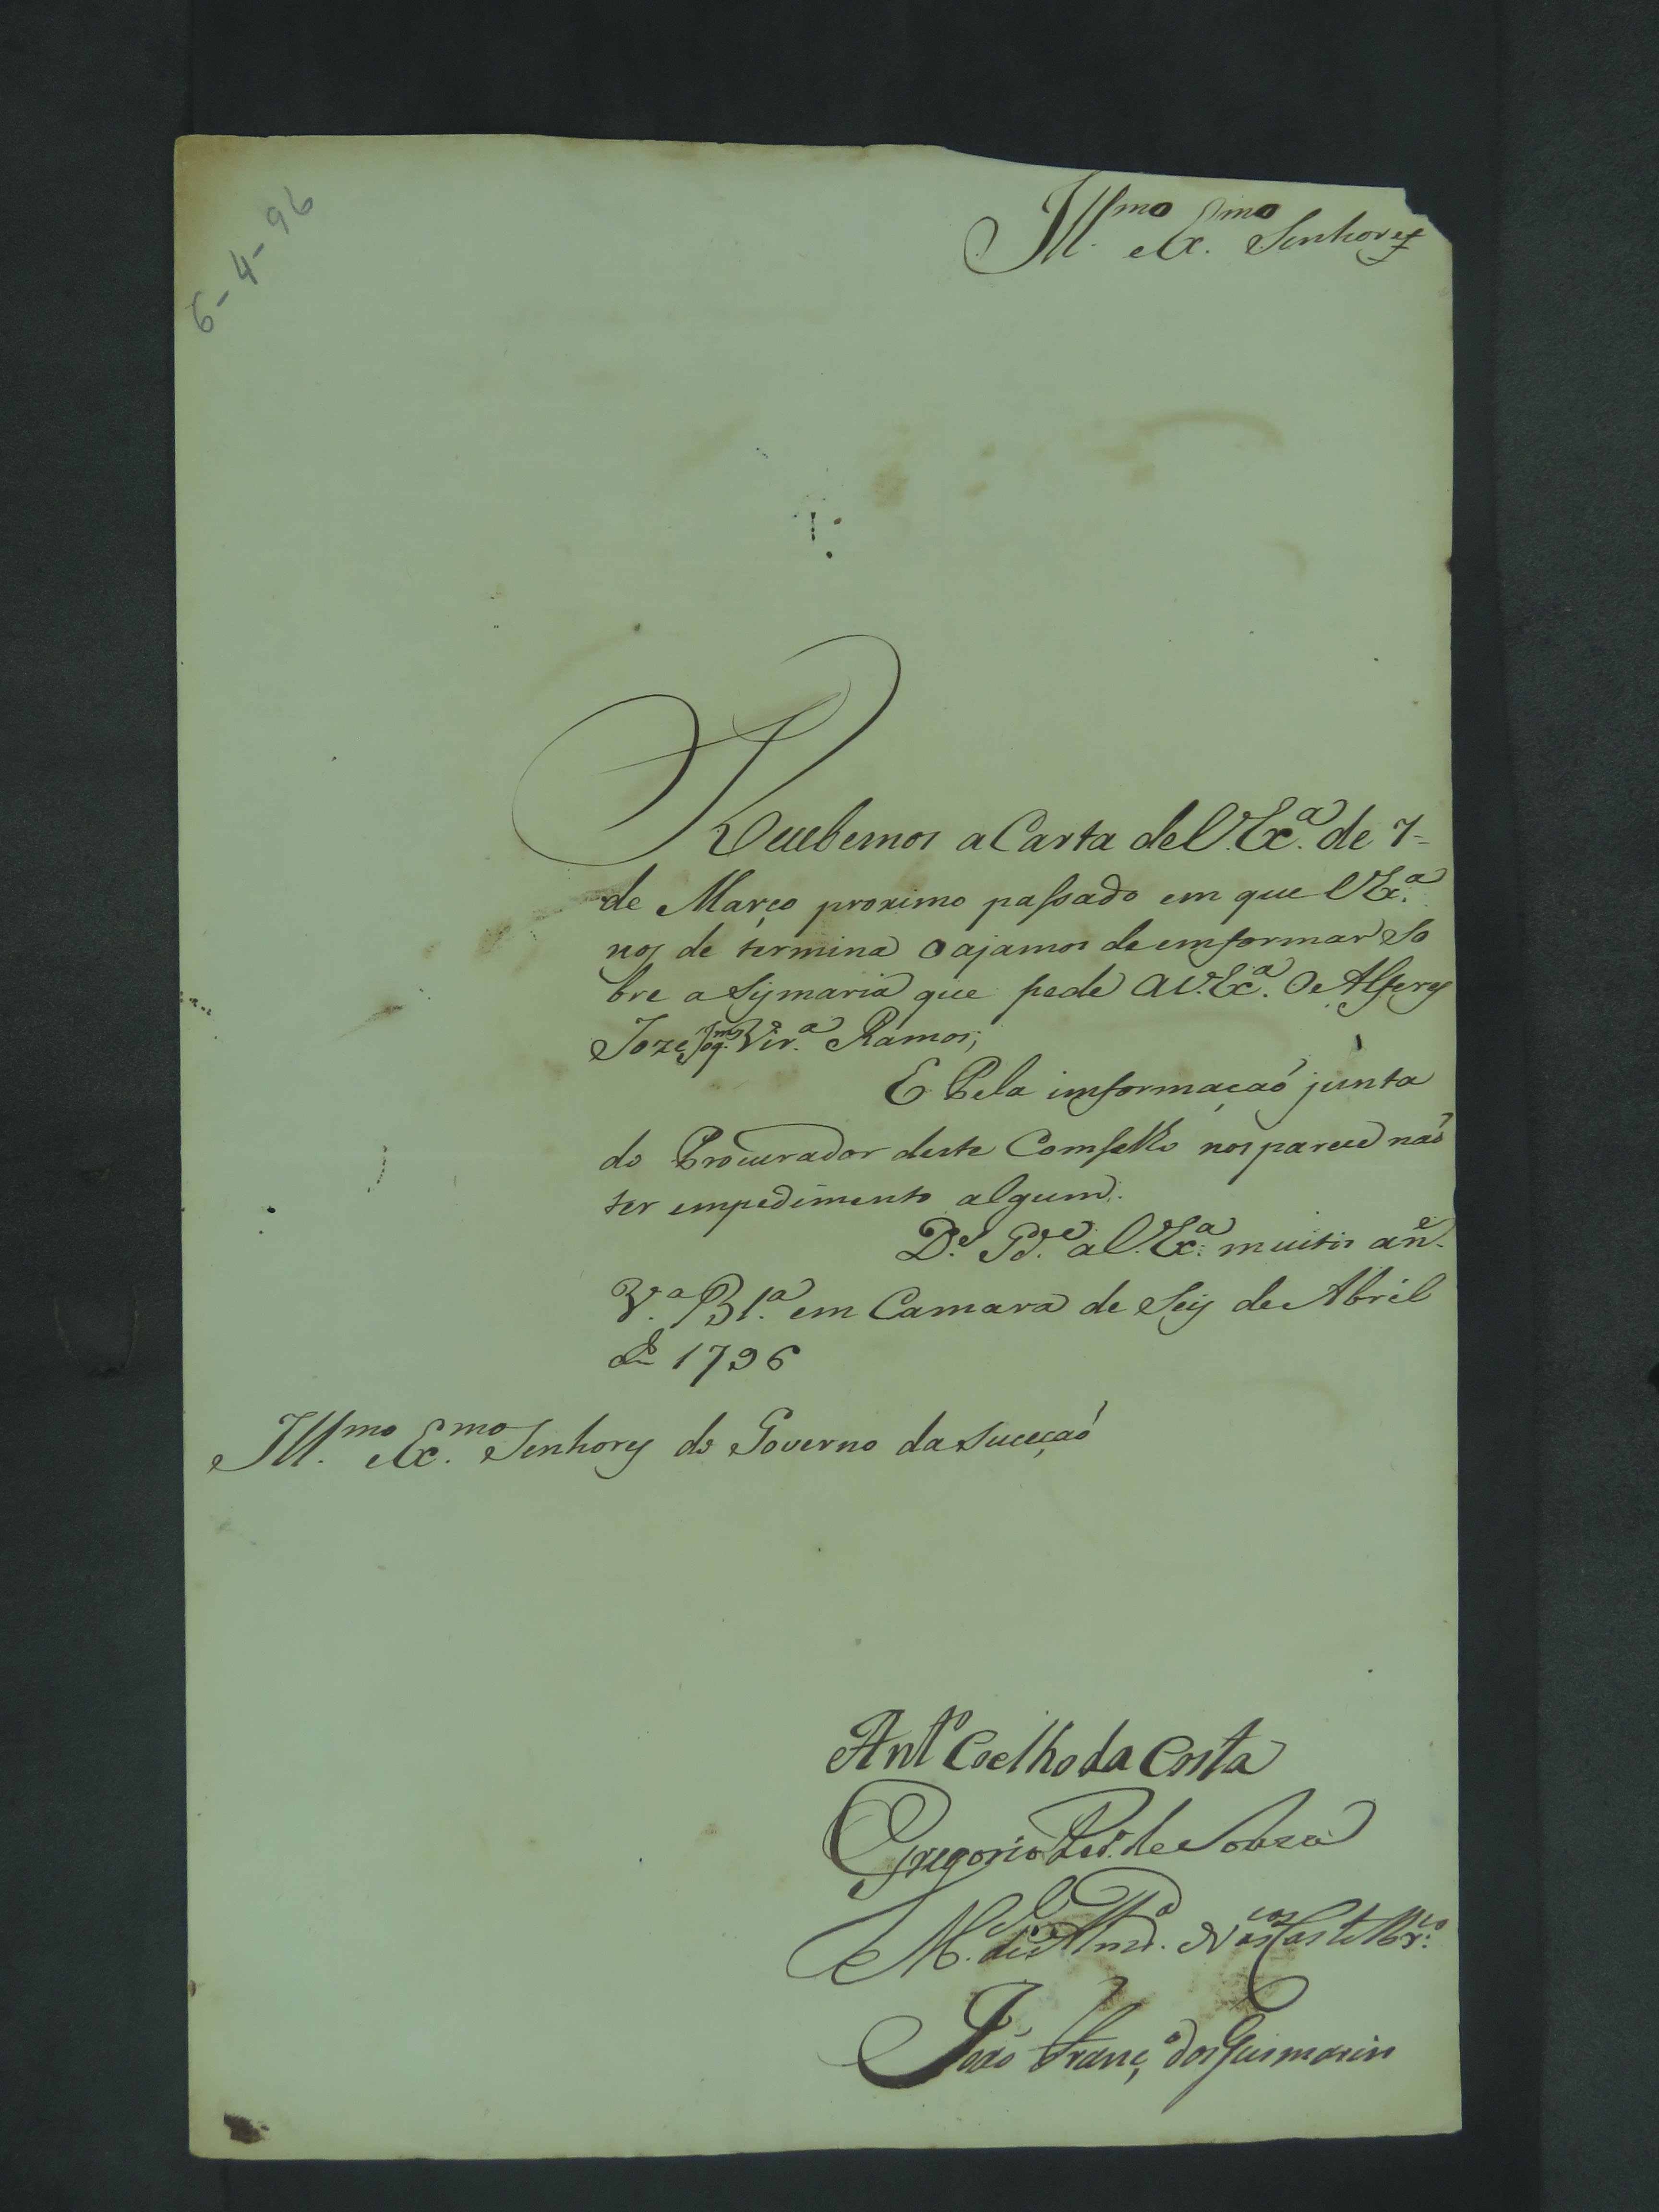 6-4-96
Ill.mo e Ex.mo Senhores
Recebemos a Carta de V. Ex.a de 7-
de Março proximo passado em que V Ex.a
nos de termina o ajamos de emformar So
bre a Sysmaria que pede a V. Ex.a O Alferes
Joze Joq.m Vir.a Ramos;
E Pela imformaçaó junta
do Procurador deste Comselho nos parece naó
ter empedimento algum.
D.s G.de a V. Ex.a muitos an.s
V.a Bl.a em Camara de Seis de Abril
de 1796
Ill.mo e Ex.mo Senhores do Governo da Suceçaó
Ant.o Coelho da Costa
Gregorio de Souza
M.
João Franc.o dos Guimarães